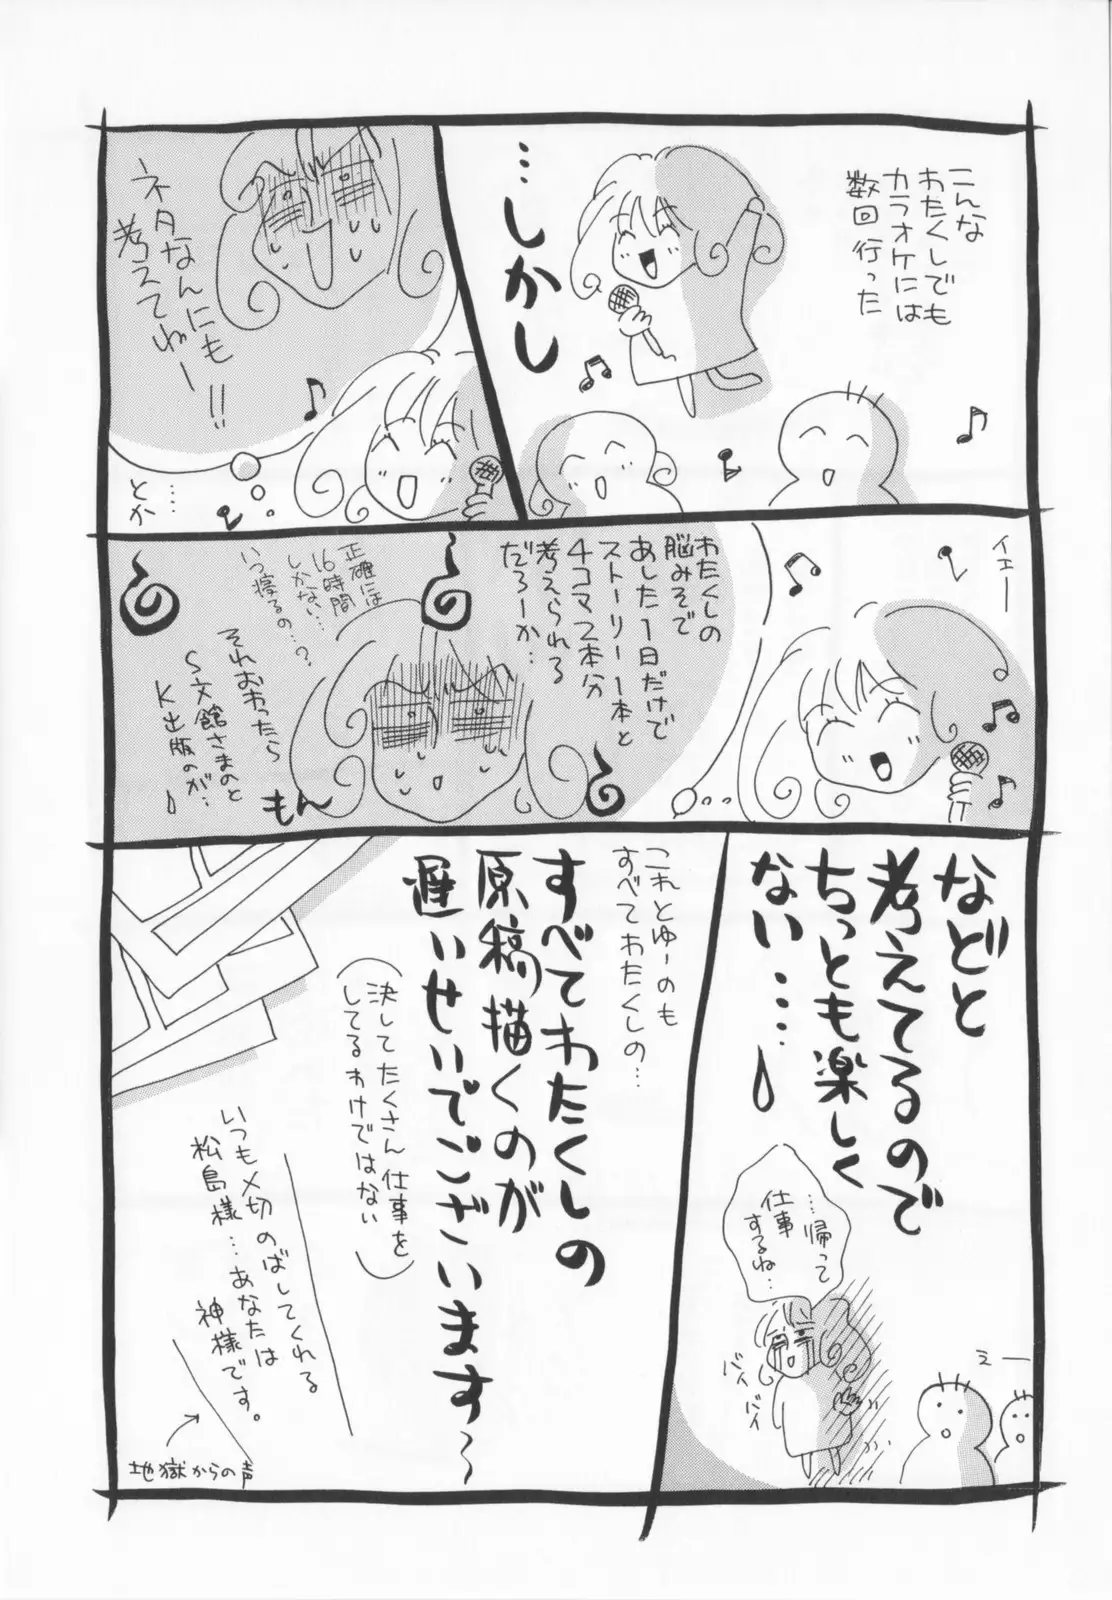 こんな
わたくしでも
カラオケには
数回行った
…しかし
ネタなんにも
考えてねー!!
……
とか
イェー
わたくしの
脳みそで
あした1日だけで
ストーリー1本と
4コマ2本分
考えられる
だろーか…
正確には
16時間
しかない…
いつ寝るの…?
それおわったら
S文館さまのと
K出版のが…
もん
などと
考えてるので
ちっとも楽しく
ない……
…帰って
仕事
するね…
バイ
バイ
えー
これとゆーのも
すべてわたくしの…
すべてわたくしの
原稿描くのが
遅いせいでございます〜
(決してたくさん仕事を
してるわけではない)
いつも〆切のばしてくれる
松島様…あなたは
神様です。
地獄からの声